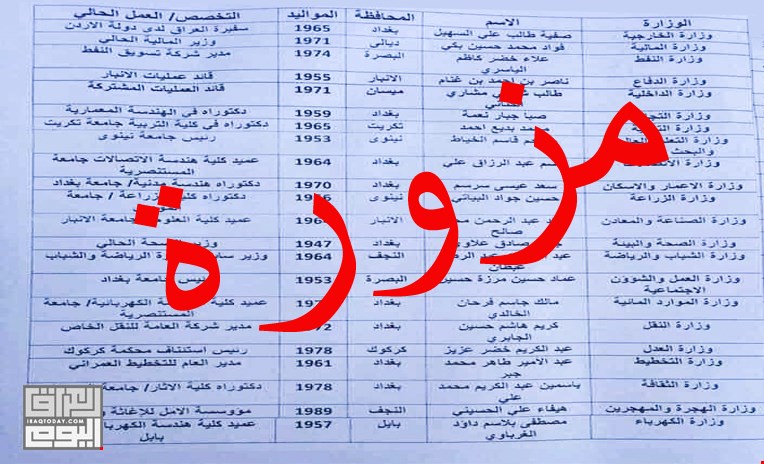 الوزارة الاسم المحافظة المواليد التخصص/ العمل الحالي
وزارة الخارجية صفية طالب علي السهيل بغداد 1965 سفيرة العراق لدى دولة الاردن
وزارة المالية فواد محمد حسين بكي ديالى 1971 وزير المالية الحالي
وزارة النفط علاء خضر كاظم الياسري البصرة 1974 مدير شركة تسويق النفط
وزارة الدفاع ناصر بن احمد بن غنام الانبار 1955 قائد عمليات الانبار
وزارة الداخلية طالب مشاري ميسان 1971 قائد العمليات المشتركة
وزارة صبا جبار نعمة بغداد 1959 دكتوراه في الهندسة المعمارية
وزارة محمد بديع احمد تكريت 1965 دكتوراه في كلية التربية جامعة تكريت
وزارة قاسم الخياط نينوى 1953 رئيس جامعة نينوى
والبحث
وزارة عبد الرزاق علي بغداد 1964 عميد كلية هندسة الاتصالات جامعة المستنصرية
وزارة الاعمار والاسكان سعد عيسى سرسم بغداد 1970 دكتوراه هندسة مدنية/ جامعة بغداد
وزارة الزراعة حسين جواد البياتي نينوى دكتوراه زراعة / جامعة
وزارة الصناعة والمعادن عبد الرحمن صالح الانبار عميد كلية العلوم جامعة الانبار
وزارة الصحة والبيئة صادق علاوي بغداد 1947 وزير الصحة الحالي
وزارة الشباب والرياضة عبد عبطان النجف 1964 وزير الرياضة والشباب
وزارة العمل والشؤون الاجتماعية عماد حسين مرزة حسين البصرة 1953 جامعة بغداد
وزارة الموارد المائية مالك جاسم فرحان الخالدي بغداد عميد كلية الكهربائية/ جامعة المستنصرية
وزارة النقل كريم هاشم حسين الجابري بغداد مدير شركة العامة للنقل الخاص
وزارة العدل عبد الكريم خضر عزيز كركوك 1978 رئيس استئناف محكمة كركوك
وزارة التخطيط عبد الامير طاهر محمد جبر بغداد 1961 مدير العام للتخطيط العمراني
وزارة الثقافة ياسمين عبد الكريم محمد علي بغداد 1978 دكتوراه كلية الاثار/ جامعة
وزارة الهجرة والمهجرين هيفاء علي الحسيني النجف 1989 مؤوسسة الامل للاغاثة
وزارة الكهرباء مصطفى بلاسم داؤد الغرباوي بابل 1957 عميد كلية هندسة بابل
مزورة
العراق اليوم
IRAQTODAY.COM